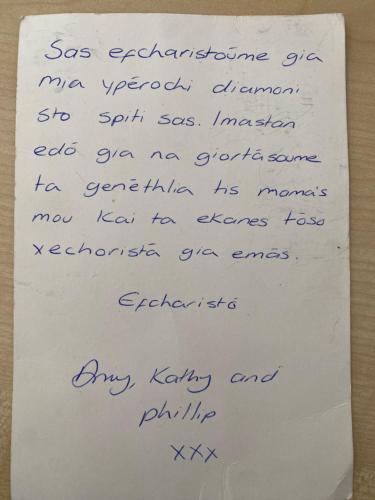 Sas efcharistoúme gia
mia ypérochi diamoni
sto spiti sas. Imastan
edó gia na giortásoume
ta genéthlia tis momás
mou kai ta ekanes tóso
xechoristá gia emás.
Efcharistó
Amy, Kathy and
phillip
xxx